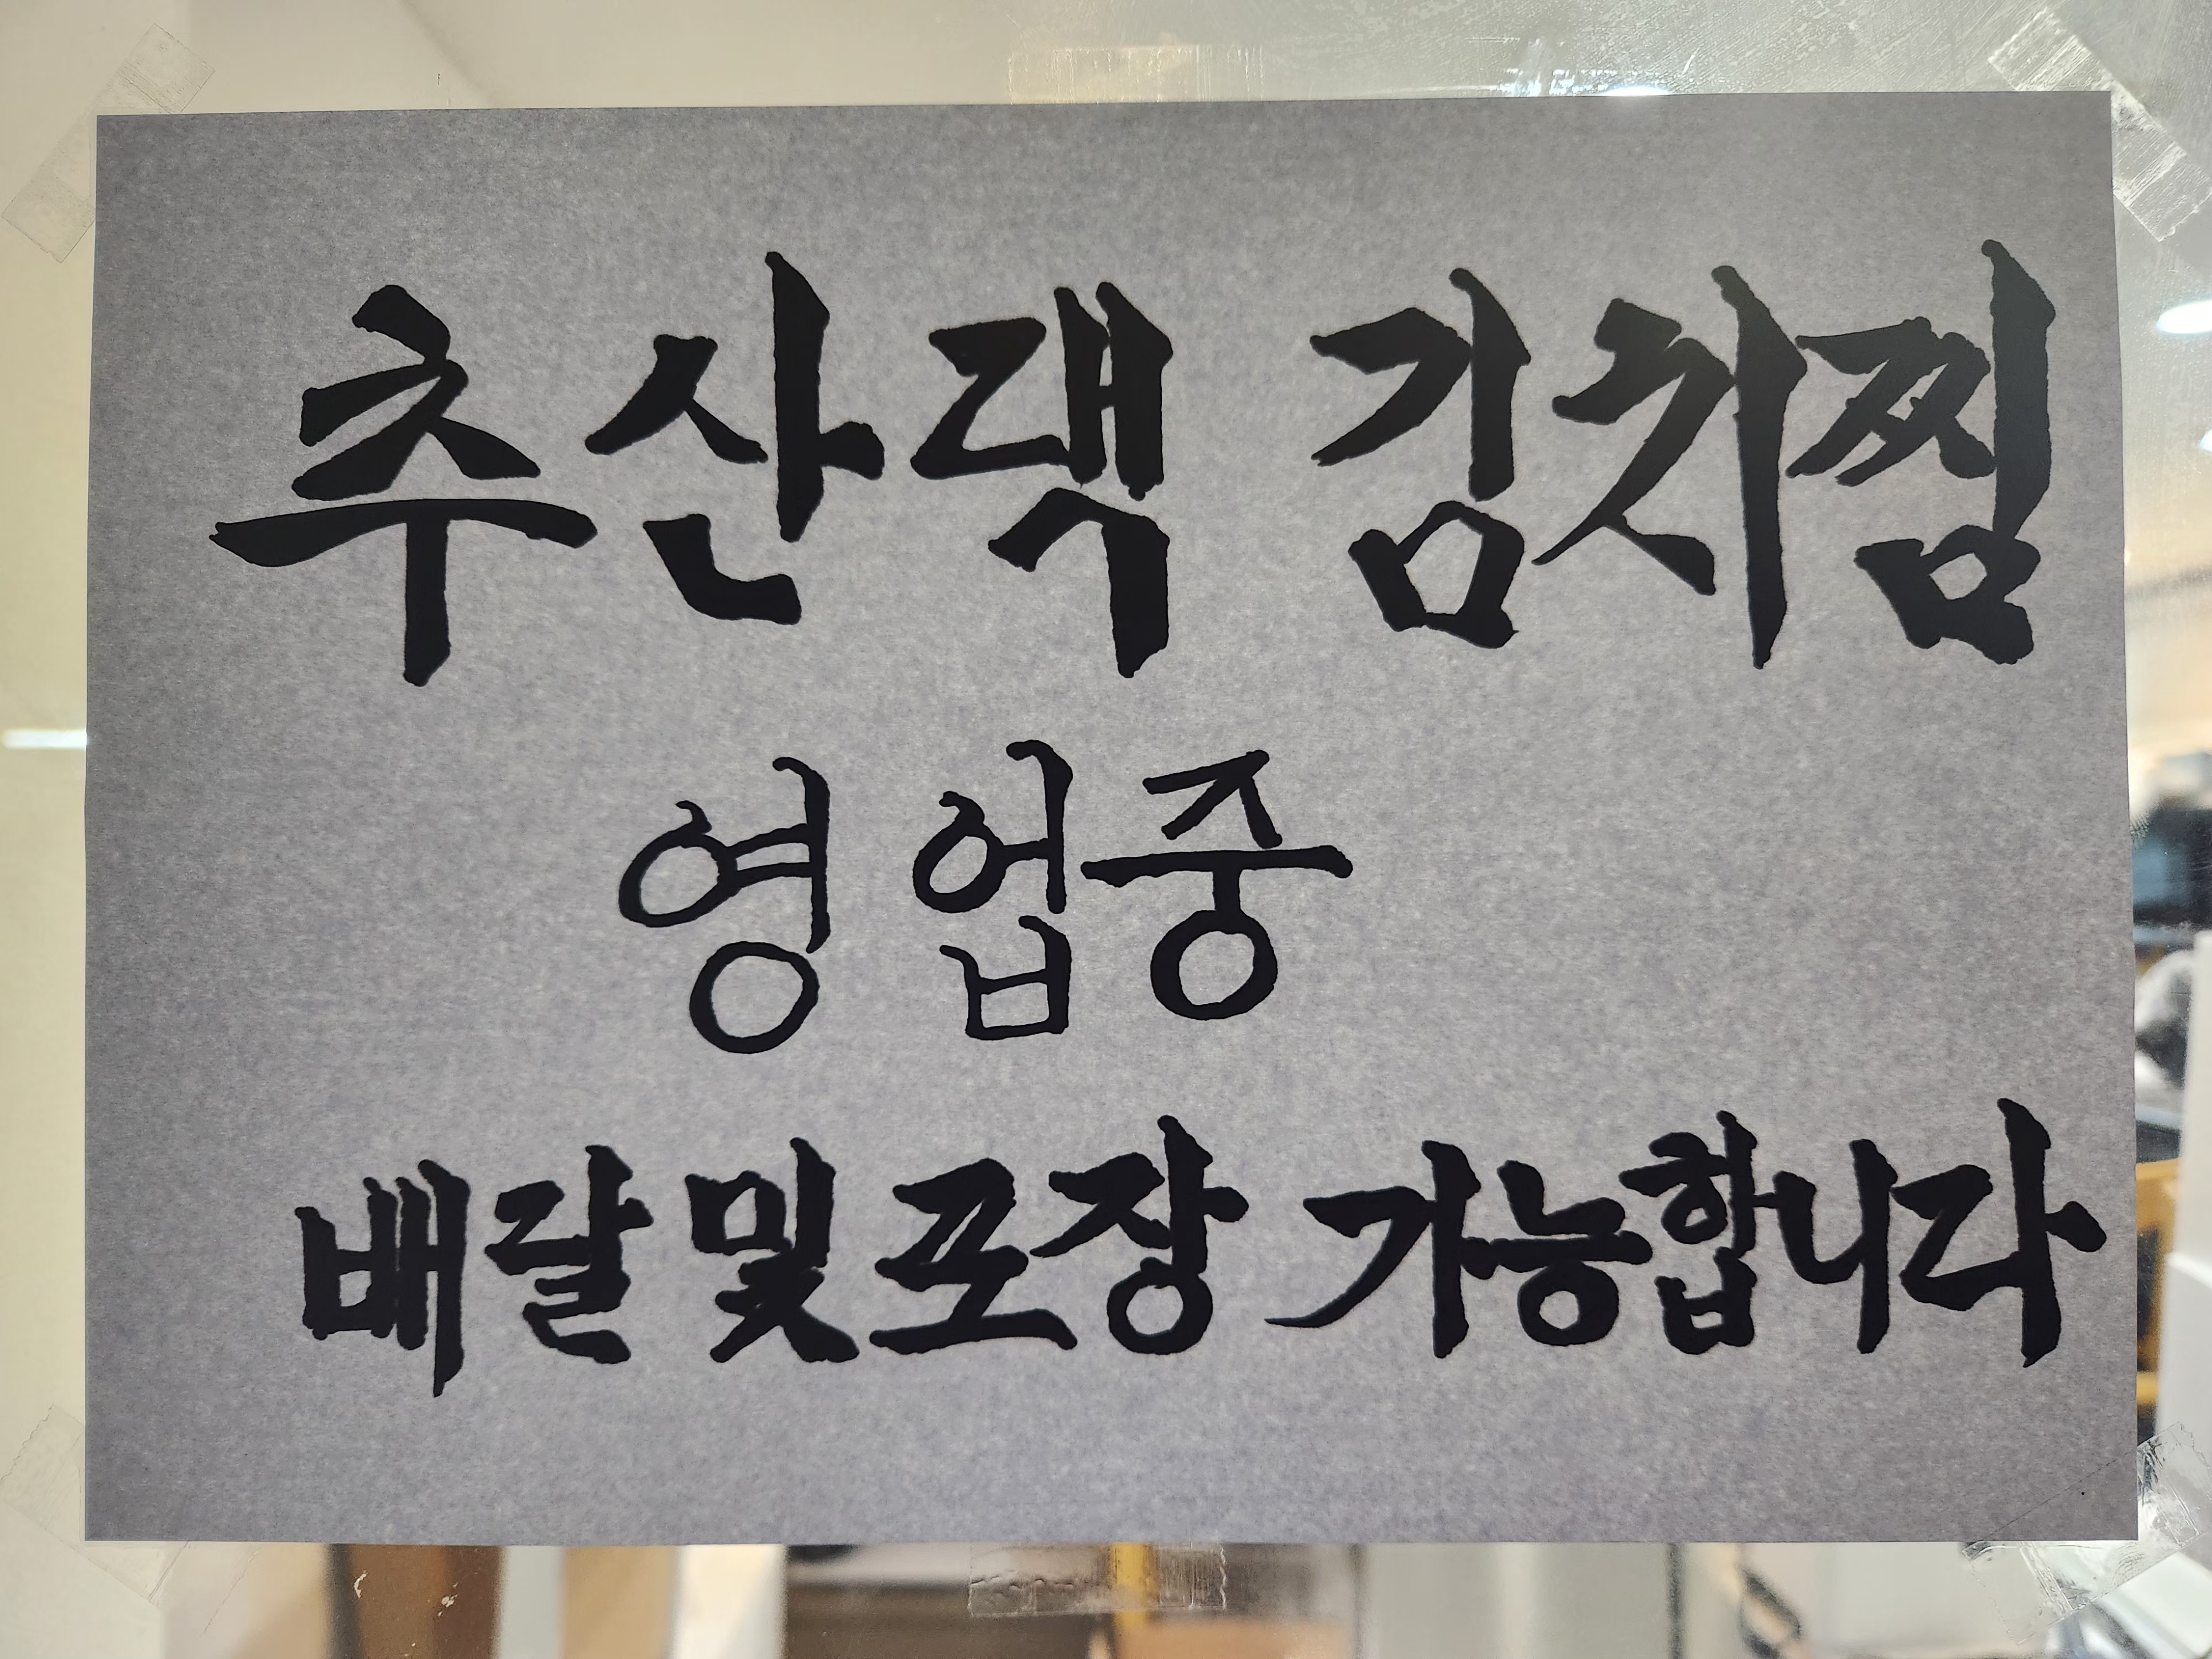 추산댁 김치찜
영업중
배달및포장 가능합니다